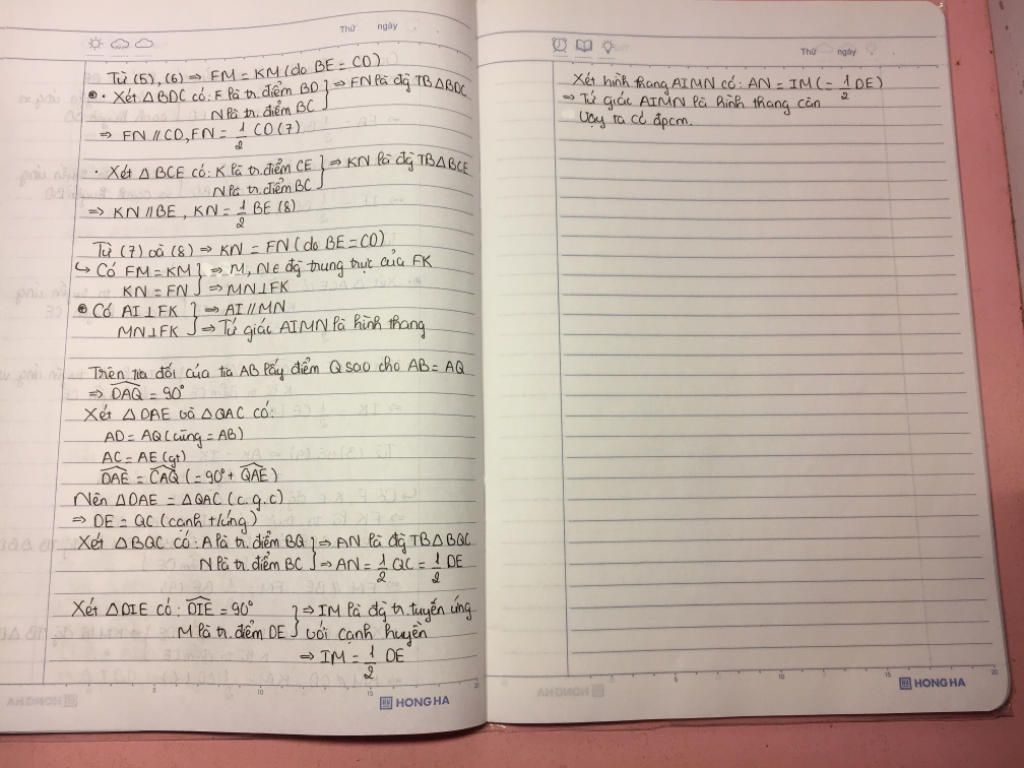 Thứ ngày
Từ (5), (6) ⇒ FM = KM (do BE = CD)
• Xét △BDC có: F là tr. điểm BD } ⇒ FN là đg TB △BDC
N là tr. điểm BC
⇒ FN // CD, FN = 1/2 CD (7)
• Xét △BCE có: K là tr. điểm CE } ⇒ KN là đg TB △BCE
N là tr. điểm BC
⇒ KN // BE, KN = 1/2 BE (8)
Từ (7) và (8) ⇒ KN = FN (do BE = CD)
↳ Có FM = KM } ⇒ M, N ∈ đg trung trực của FK
KN = FN } ⇒ MN ⊥ FK
• Có AI ⊥ FK } ⇒ AI // MN
MN ⊥ FK } ⇒ Tứ giác AIMN là hình thang
Trên tia đối của tia AB lấy điểm Q sao cho AB = AQ
⇒ \widehat{DAQ} = 90°
Xét △DAE và △QAC có:
AD = AQ (cùng = AB)
AC = AE (gt)
\widehat{DAE} = \widehat{CAQ} (= 90° + \widehat{QAE})
Nên △DAE = △QAC (c.g.c)
⇒ DE = QC (cạnh t/ứng)
Xét △BQC có: A là tr. điểm BQ } ⇒ AN là đg TB △BQC
N là tr. điểm BC } ⇒ AN = 1/2 QC = 1/2 DE
Xét △DIE có: \widehat{DIE} = 90° } ⇒ IM là đg tr. tuyến ứng
M là tr. điểm DE } với cạnh huyền
⇒ IM = 1/2 DE
5 10 15 20
HONG HA
Thứ ngày
Xét hình thang AIMN có: AN = IM (= 1/2 DE)
⇒ Tứ giác AIMN là hình thang cân
Vậy ta có đpcm.
5 10 15 20
HONG HA